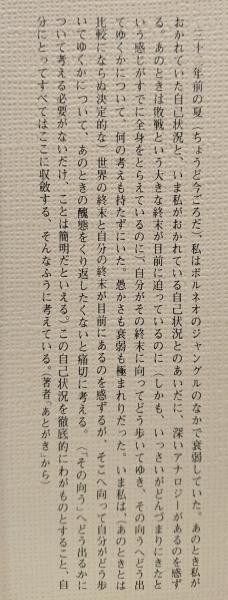 二十一年前の夏（ちょうど今ごろだ）、私はボルネオのジャングルのなかで衰弱していた。あのとき私が
おかれていた自己状況と、いま私がおかれている自己状況とのあいだに、深いアナロジーがあるのを感ず
る。あのときは敗戦という大きな終末が目前に迫っているのに（しかも、いっさいがどんづまりにきたと
いう感じがすでに全身をとらえているのに）、自分がその終末に向ってどう歩いてゆき、その向うへどう出
てゆくかについて、何の考えも持たずにいた。愚かさも衰弱も極まれりだった。いま私は、（あのときとは
比較にならぬ決定的な）世界の終末と自分の終末が目前にあるのを感ずるが、そこへ向って自分がどう歩
いてゆくかについて、あのときの醜態をくり返したくないと痛切に考える。（「その向う」へどう出るかに
ついて考える必要がないだけ、ことは簡明だといえる。）この自己状況を徹底的にわがものとすること、自
分にとってすべてはここに収斂する、そんなふうに考えている。（著者「あとがき」から）